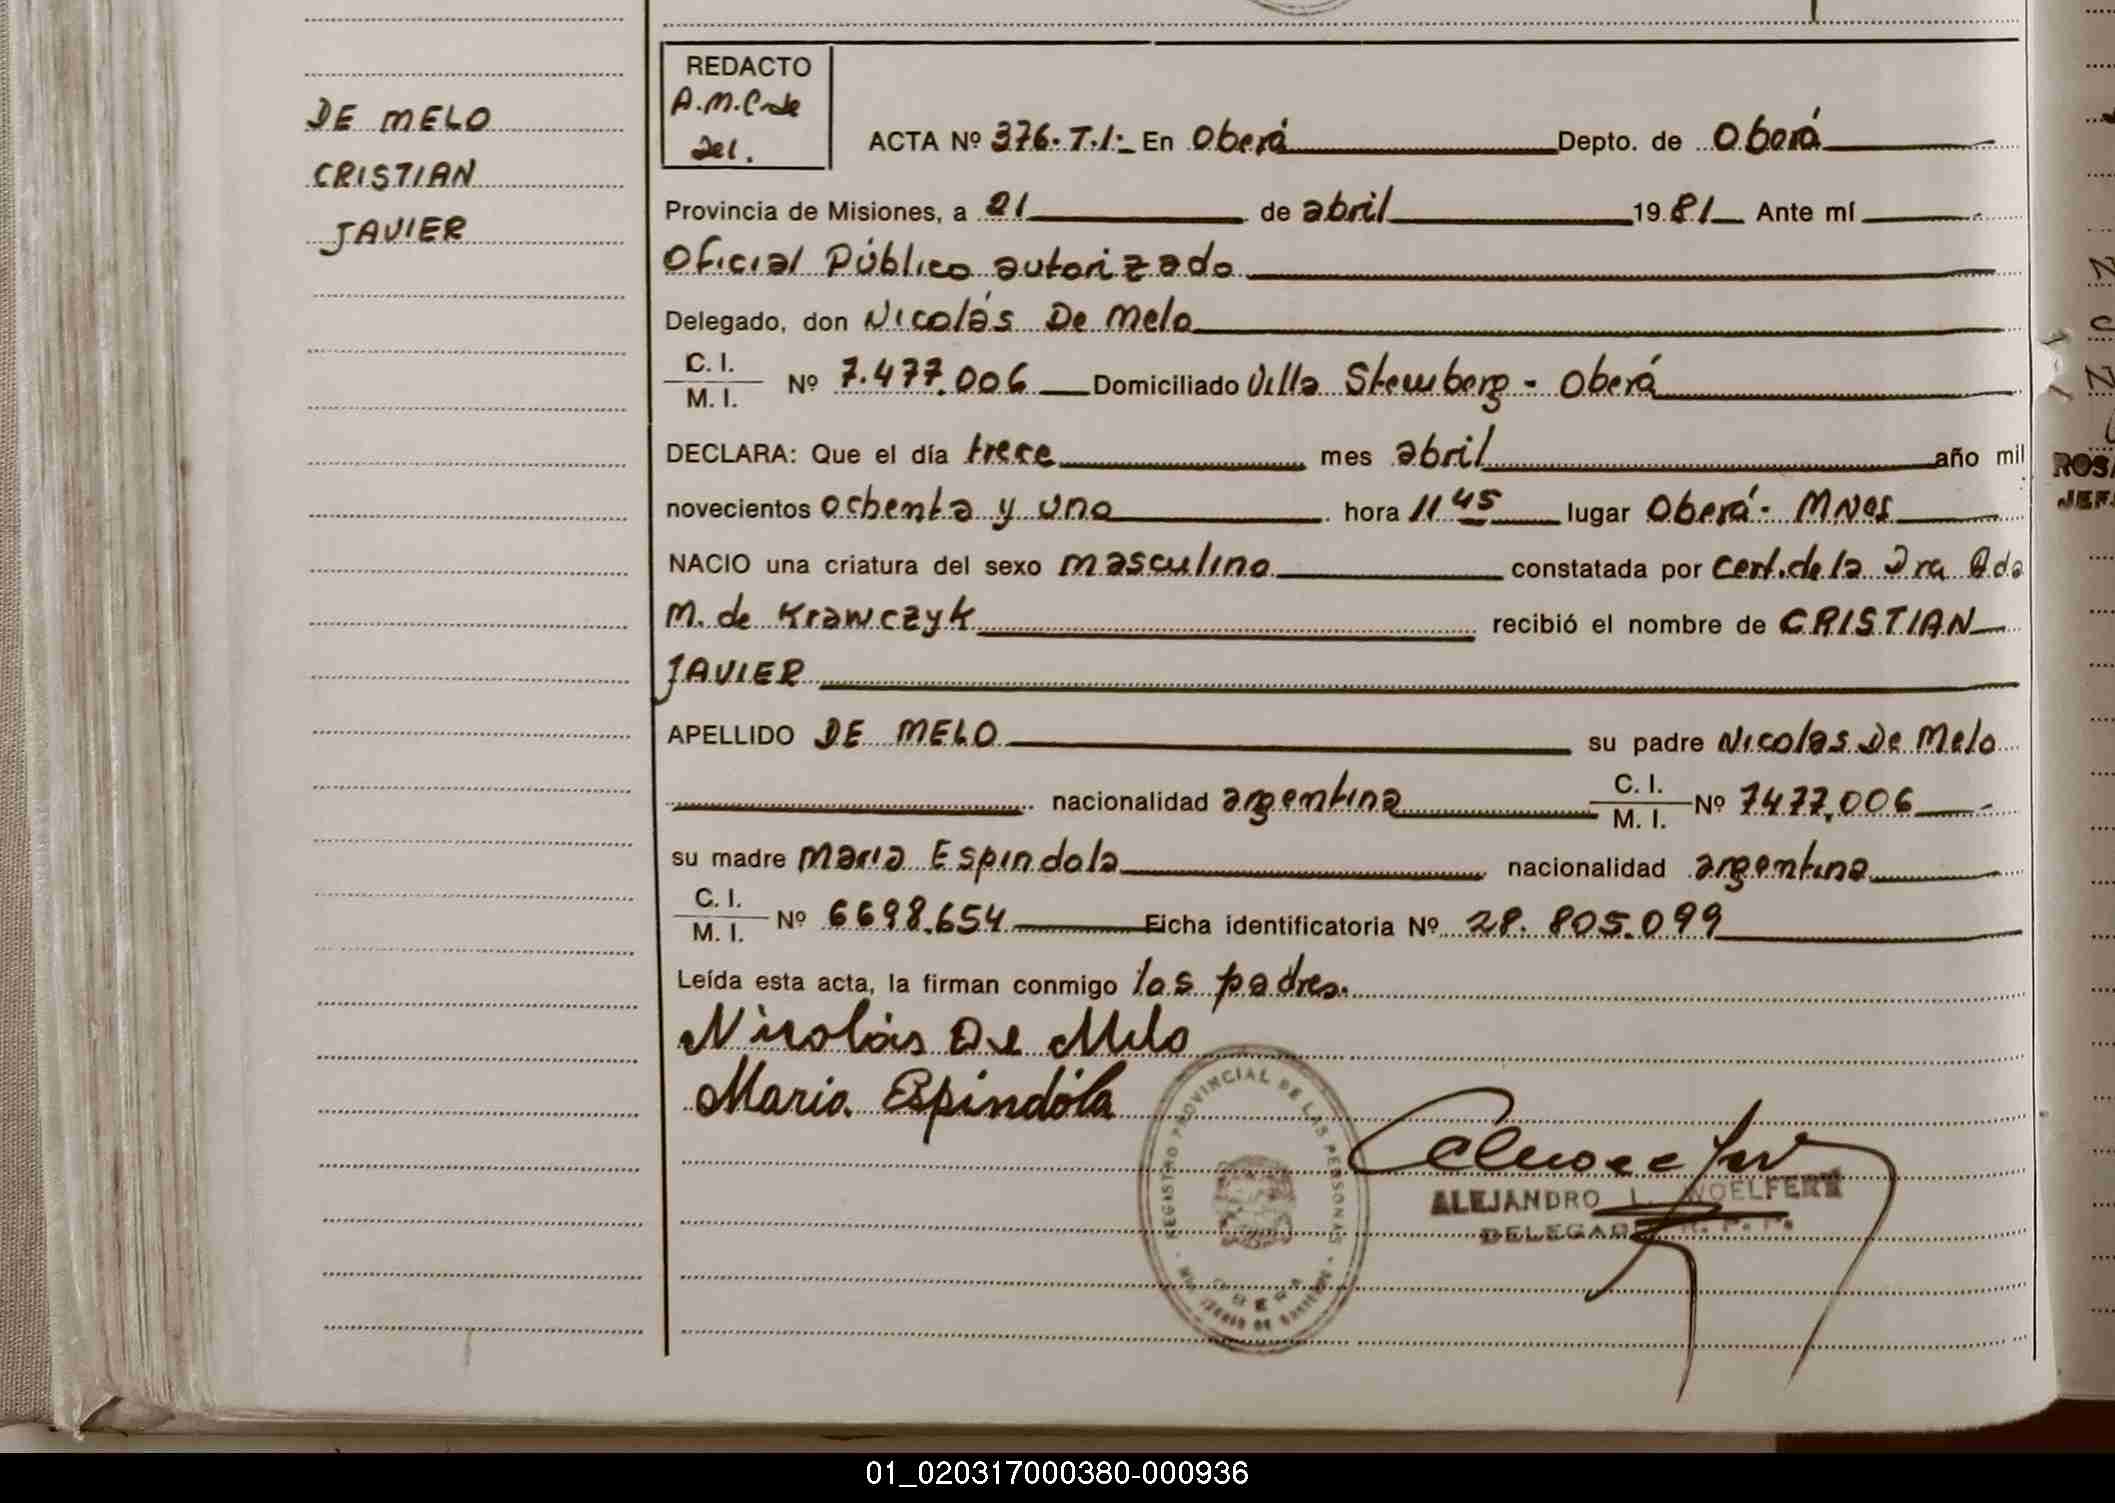 DE MELO
CRISTIAN
JAVIER
REDACTO
A.M.C. de
Del.
ACTA Nº 376. T.I:- En Oberá Depto. de Oberá
Provincia de Misiones, a 21 de abril 1981 Ante mí
Oficial Público autorizado
Delegado, don Nicolás De Melo
C. I.
M. I. Nº 7.477.006 Domiciliado Villa Stemberg - Oberá
DECLARA: Que el día trece mes abril año mil
novecientos ochenta y uno hora 11 45 lugar Oberá - MNes
NACIO una criatura del sexo masculino constatada por cert. de la Dra Ada
M. de Krawczyk recibió el nombre de CRISTIAN
JAVIER
APELLIDO DE MELO su padre Nicolas De Melo
nacionalidad argentina C. I.
M. I. Nº 7477.006
su madre Maria Espindola nacionalidad argentina
C. I.
M. I. Nº 6698.654 Ficha identificatoria Nº 28.805.099
Leída esta acta, la firman conmigo los padres.
Nicolás De Melo
Maria Espindóla
REGISTRO PROVINCIAL DE LAS PERSONAS
OBERA
ALEJANDRO L. WOELFERT
DELEGADO R. P. P.
ROS
JEF
01_020317000380-000936